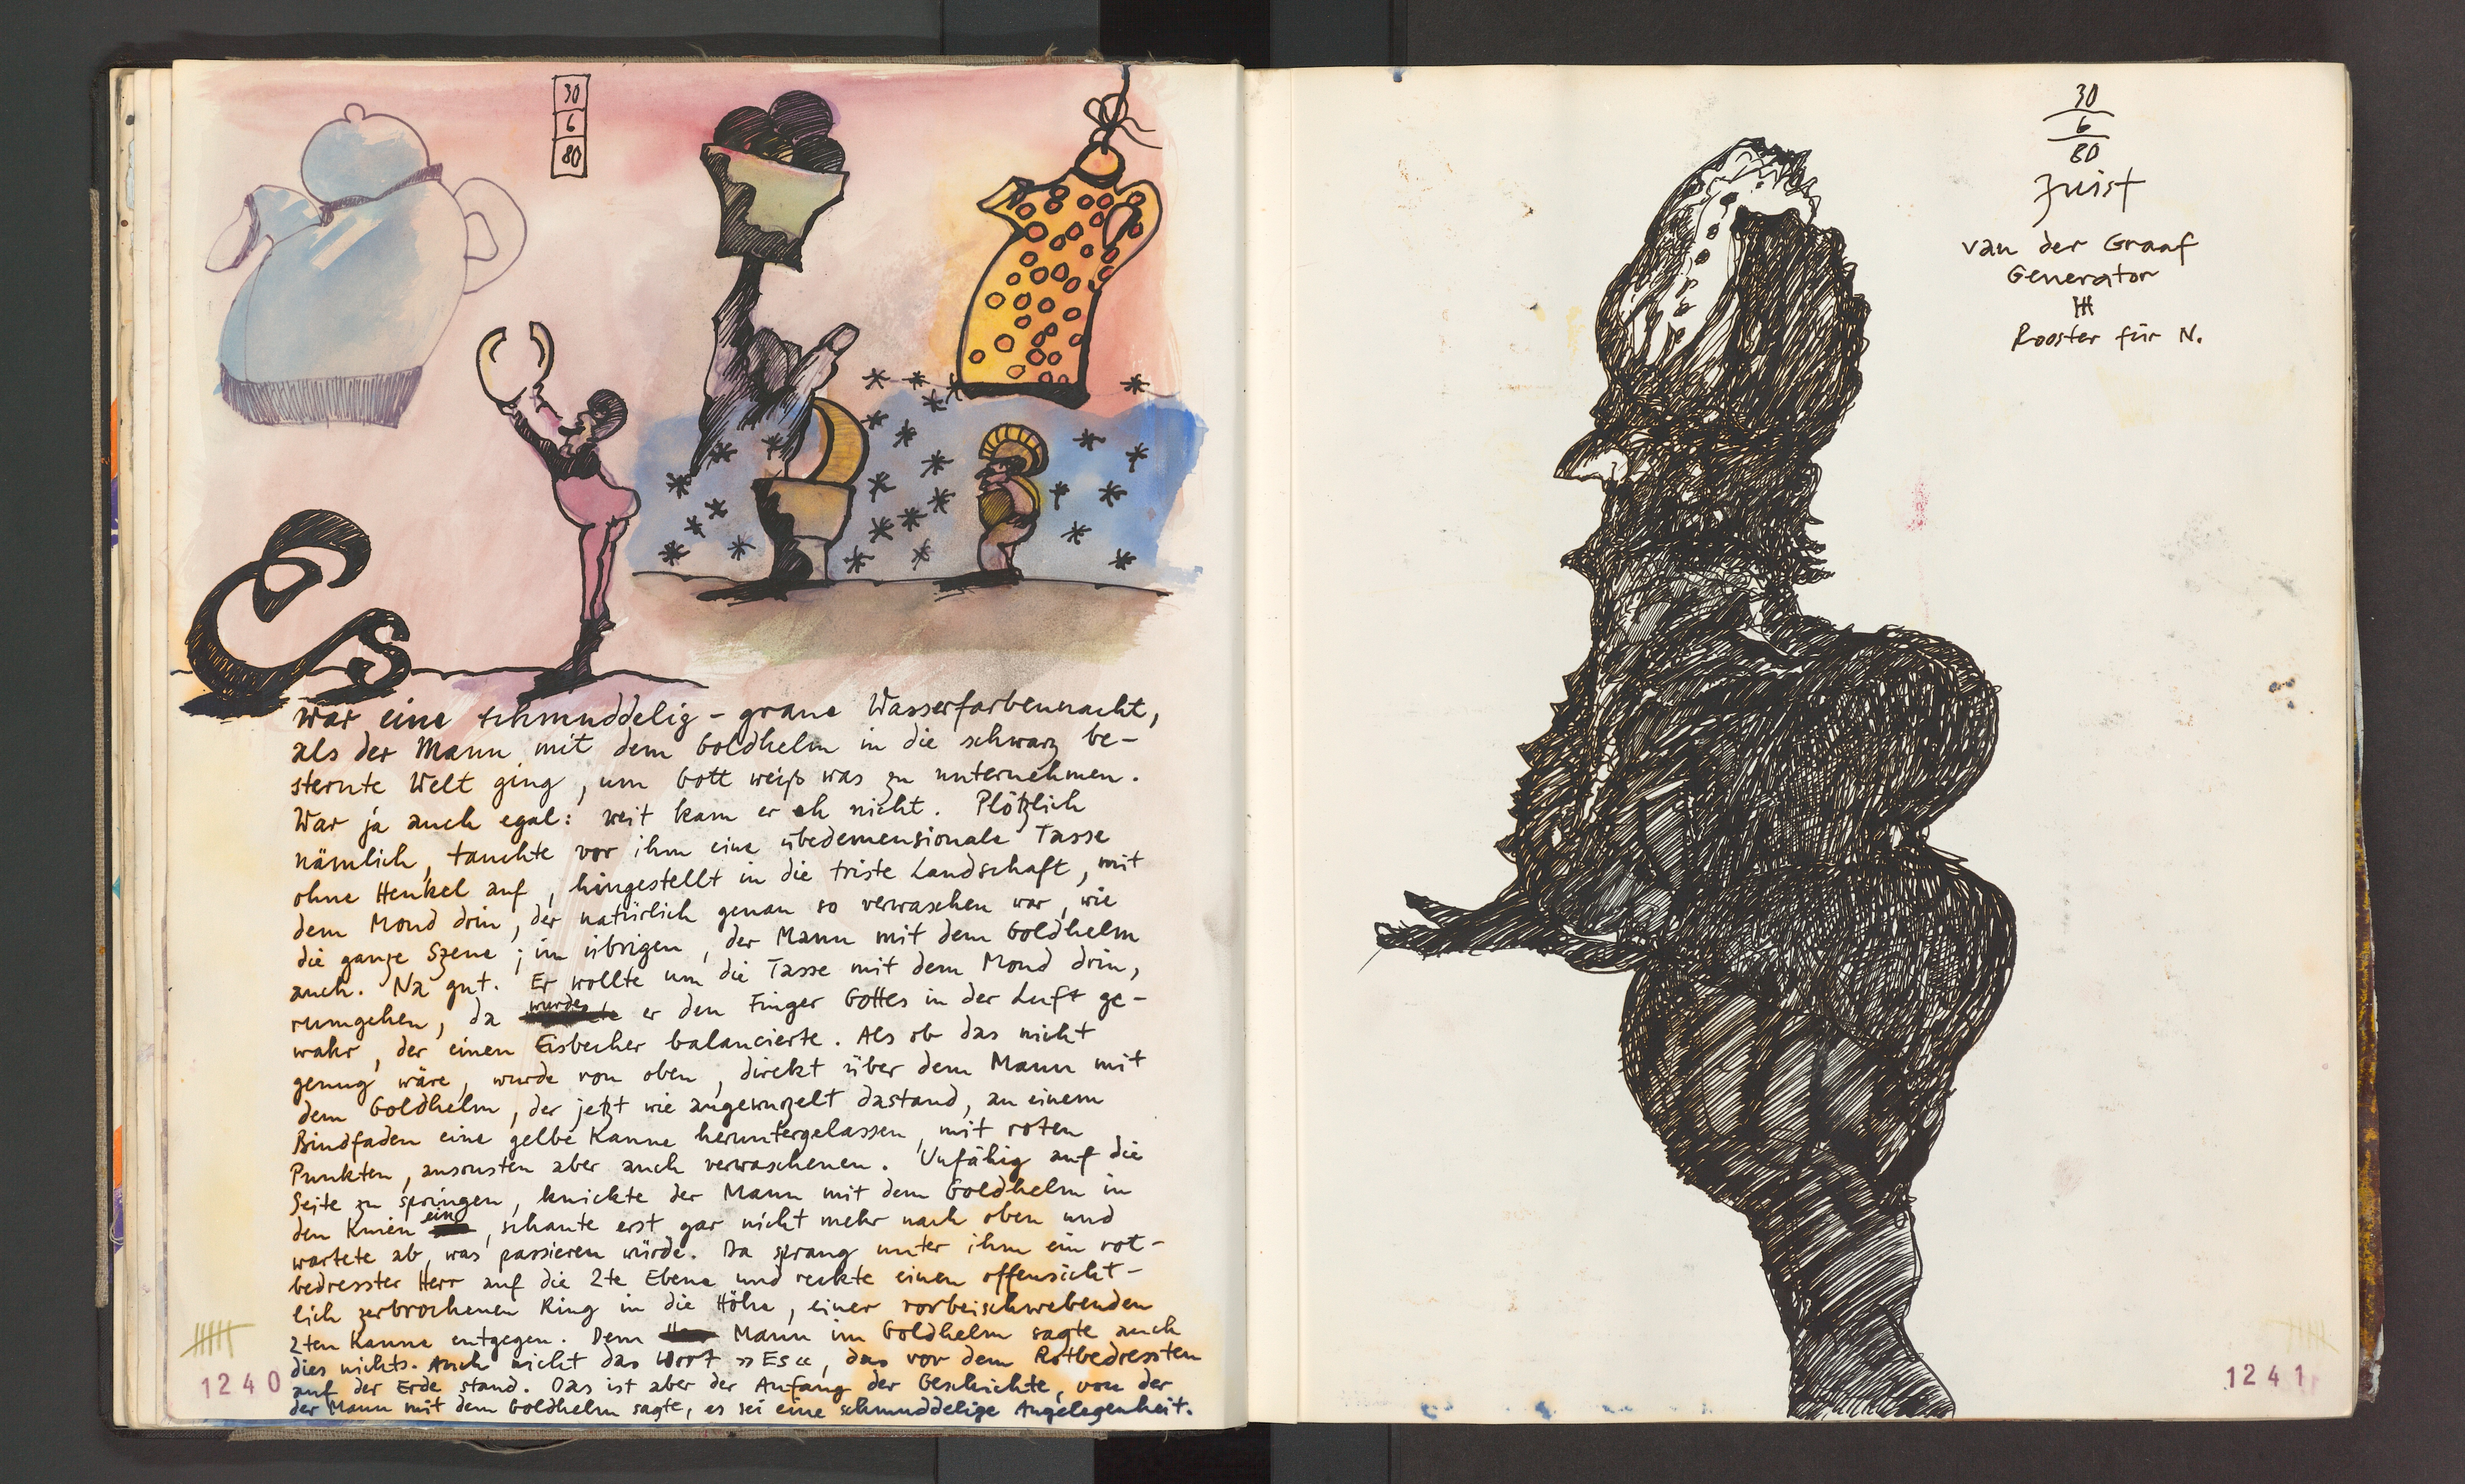 30
6
80
Es
war eine schmuddelig-graue Wasserfarbennacht,
als der Mann mit dem Goldhelm in die schwarz be-
sternte Welt ging, um Gott weiß was zu unternehmen.
War ja auch egal: weit kam er eh nicht. Plötzlich
nämlich, tauchte vor ihm eine übedemensionale Tasse
ohne Henkel auf, hingestellt in die triste Landschaft, mit
dem Mond drin, der natürlich genau so verwaschen war, wie
die ganze Szene; im übrigen, der Mann mit dem Goldhelm
auch. Na gut. Er wollte um die Tasse mit dem Mond drin,
rumgehen, da wurde er den Finger Gottes in der Luft ge-
wahr, der einen Eisbecher balancierte. Als ob das nicht
genug wäre, wurde von oben, direkt über dem Mann mit
dem Goldhelm, der jetzt wie angewurzelt dastand, an einem
Bindfaden eine gelbe Kanne heruntergelassen, mit roten
Punkten, ansonsten aber auch verwaschenen. Unfähig auf die
Seite zu springen, knickte der Mann mit dem Goldhelm in
den Knien ein, schaute erst gar nicht mehr nach oben und
wartete ab, was passieren würde. Da sprang unter ihm ein rot-
bedresster Herr auf die 2te Ebene und reckte einen offensicht-
lich zerbrochenen Ring in die Höhe, einer vorbeischwebenden
2ten Kanne entgegen. Dem Mann im Goldhelm sagte auch
dies nichts. Auch nicht das Wort »Es«, das vor dem Rotbedressten
auf der Erde stand. Das ist aber der Anfang der Geschichte, von der
der Mann mit dem Goldhelm sagte, es sei eine schmuddelige Angelegenheit.
1240
30
6
80
Juist
van der Graaf
Generator
Rooster für N.
1241